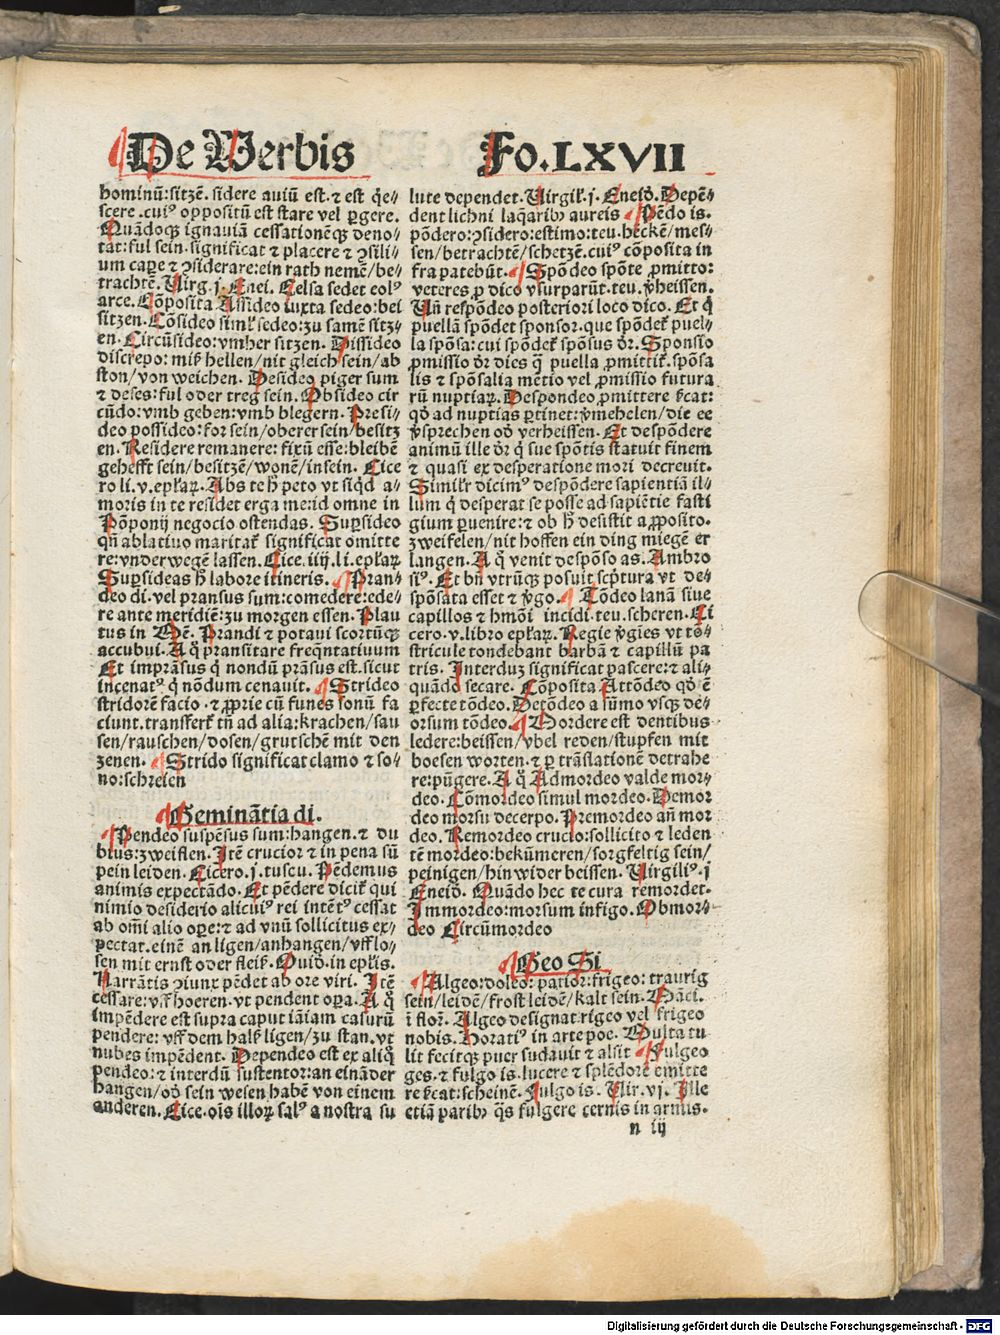 De Verbis
Fo.LXVII
hominū:sitzē. sidere auiū est. ⁊ est q̇e⸗
scere .cuiꝰ oppositū est stare vel ꝑgere.
Quādoqꝫ ignauiā cessationēqꝫ deno⸗
tat:ful sein. significat ⁊ placere ⁊ ꝯsili⸗
um caꝑe ⁊ ꝯsiderare:ein rath nemē/be⸗
trachtē. Uirg. j. Enei. Celsa sedet eolꝰ
arce. Cōposita Assideo iuxta sedeo:bei
sitzen. Cōsideo siml' sedeo:zu samē sitz⸗
en. Circūsideo:vmher sitzen. Dissideo
discrepo: miß hellen/nit gleich sein/ab
ston/von weichen. Desideo piger sum
⁊ deses: ful oder treg sein. Obsideo cir
cūdo:vmb geben:vmb blegern. Presi⸗
deo possideo:for sein/oberer sein/besitz
en. Residere remanere: fixū esse:bleibē
gehefft sein/besitzē/wonē/in sein. Cice
ro li. v. epłaꝝ. Abs te ħ peto vt siq̇d a⸗
moris in te residet erga me:id omne in
Pōponij negocio ostendas. Suꝑsideo
qn̄ ablatiuo maritat͛ significat omitte
re:vnderwegē lassen. Cice. iiij. li. epłaꝝ
Suꝑsideas ħ labore itineris. Pran⸗
deo di. vel pransus sum:comedere:ede⸗
re ante meridiē:zu morgen essen. Plau
tus in Mē. Prandi ⁊ potaui scortūqꝫ
accubui. A q̊ pransitare freq̄ntatiuum
Et imprāsus q̇ nondū prāsus est. sicut
incenatꝰ q̇ nōdum cenauit. Strideo
stridorē facio · ⁊ ꝓprie cū funes sonū fa
ciunt. transfert͛ tn̄ ad alia:krachen/sau
sen/rauschen/dosen/grutschē mit den
zenen. Strido significat clamo ⁊ so⸗
no:schreien
Geminātia di.
Pendeo suspēsus sum:hangen. ⁊ du
bius:zweiflen. Itē crucior ⁊ in pena sū
pein leiden. Cicero. j. tuscu. Pēdemus
animis expectādo. Et pēdere dicit͛ qui
nimio desiderio alicuiꝰ rei intētꝰ cessat
ab om̄i alio oꝑe: ⁊ ad vnū sollicitus ex⸗
pectat. einē an ligen/anhangen/vff lo⸗
sen mit ernst oder fleiß. Ouid. in epłis.
Narrātis ꝯiunx pēdet ab ore viri. Itē
cessare: vff hoeren. vt pendent oꝑa. A q̊
impēdere est supra caput iāiam casurū
pendere: vff dem halß ligen/zu stan. vt
nubes impēdent. Dependeo est ex aliq̊
pendeo: ⁊ interdū sustentor:an eināder
hangen/od̛ sein wesen habē von einem
anderen. Cice. oīs illoꝝ salꝰ a nostra sa
lute dependet. Uirgil'. j. Eneid̛. Depē⸗
dent lichni laq̄aribꝰ aureis Pēdo is.
pōdero:ꝯsidero:estimo:teu. heckē/mes⸗
sen/betrachtē/schetzē.cuiꝰ cōposita in
fra patebūt. Spōdeo spōte ꝓmitto:
veteres ꝓ dico vsurparūt.teu. v̛heissen.
Un̄ respōdeo posteriori loco dico. Et q̇
puellā spōdet sponsor. que spōdet͛ puel⸗
la spōsa: cui spōdet͛ spōsus d̛r. Sponsio
ꝓmissio d̛r dies q̄ puella ꝓmittit͛. spōsa
lis ⁊ spōsalia mētio vel ꝓmissio futura
rū nuptiaꝝ. Despondeo ꝓmittere ß̄cat:
qd̛ ad nuptias ꝑtinet: v̛mehelen/die ee
v̛sprechen od̛ verheissen. Et despōdere
animū ille d̛r q̇ sue spōtis statuit finem
⁊ quasi ex desperatione mori decreuit.
Simil'r dicimꝰ despōdere sapientiā il⸗
lum q̇ desperat se posse ad sapiētie fasti
gium ꝑuenire: ⁊ ob ħ desistit a ꝓposito.
zweifelen/nit hoffen ein ding miegē er
langen. A q̊ venit despōso as. Ambro
siꝰ. Et bn̄ vtrūqꝫ posuit scp̄tura vt de⸗
spōsata esset ⁊ v̛go. Tōdeo lanā siue
capillos ⁊ hmōi incidi. teu. scheren. Ci
cero. v. libro epłaꝝ. Regie v̛gies vt tō⸗
stricule tondebant barbā ⁊ capillū pa
tris. Interduz significat pascere: ⁊ ali⸗
quādo secare. Cōposita Attōdeo qd̛ ē
ꝑfecte tōdeo. Detōdeo a sūmo vsqꝫ de⸗
orsum tōdeo. Mordere est dentibus
ledere:beissen/vbel reden/stupfen mit
boesen worten. ⁊ ꝑ trāslationē detrahe
re:pūgere. A q̊ Admordeo valde mor⸗
deo. Cōmordeo simul mordeo. Demor
deo morsu decerpo. Premordeo an̄ mor
deo. Remordeo crucio:sollicito ⁊ leden
tē mordeo:bekūmeren/sorgfeltig sein/
peinigen/hin wider beissen. Uirgiliꝰ. j
Eneid̛. Quādo hec te cura remordet.
Immordeo:morsum infigo. Obmor⸗
deo Circūmordeo
Geo Si
Algeo:doleo: patior:frigeo: traurig
sein/leidē/frost leidē/kalt sein. Māci.
ī flor̛. Algeo designat rigeo vel frigeo
nobis. Horatiꝰ in arte poe. Multa tu⸗
lit fecitqꝫ puer sudauit ⁊ alsit Fulgeo
ges. ⁊ fulgo is. lucere ⁊ splēdorē emitte
re ß̄cat:scheinē. Fulgo is. Uir. vj. Ille
etiā paribꝰ q̄s fulgere cernis in armis.
n iij
Digitalisierung gefördert durch die Deutsche Forschungsgemeinschaft - DFG